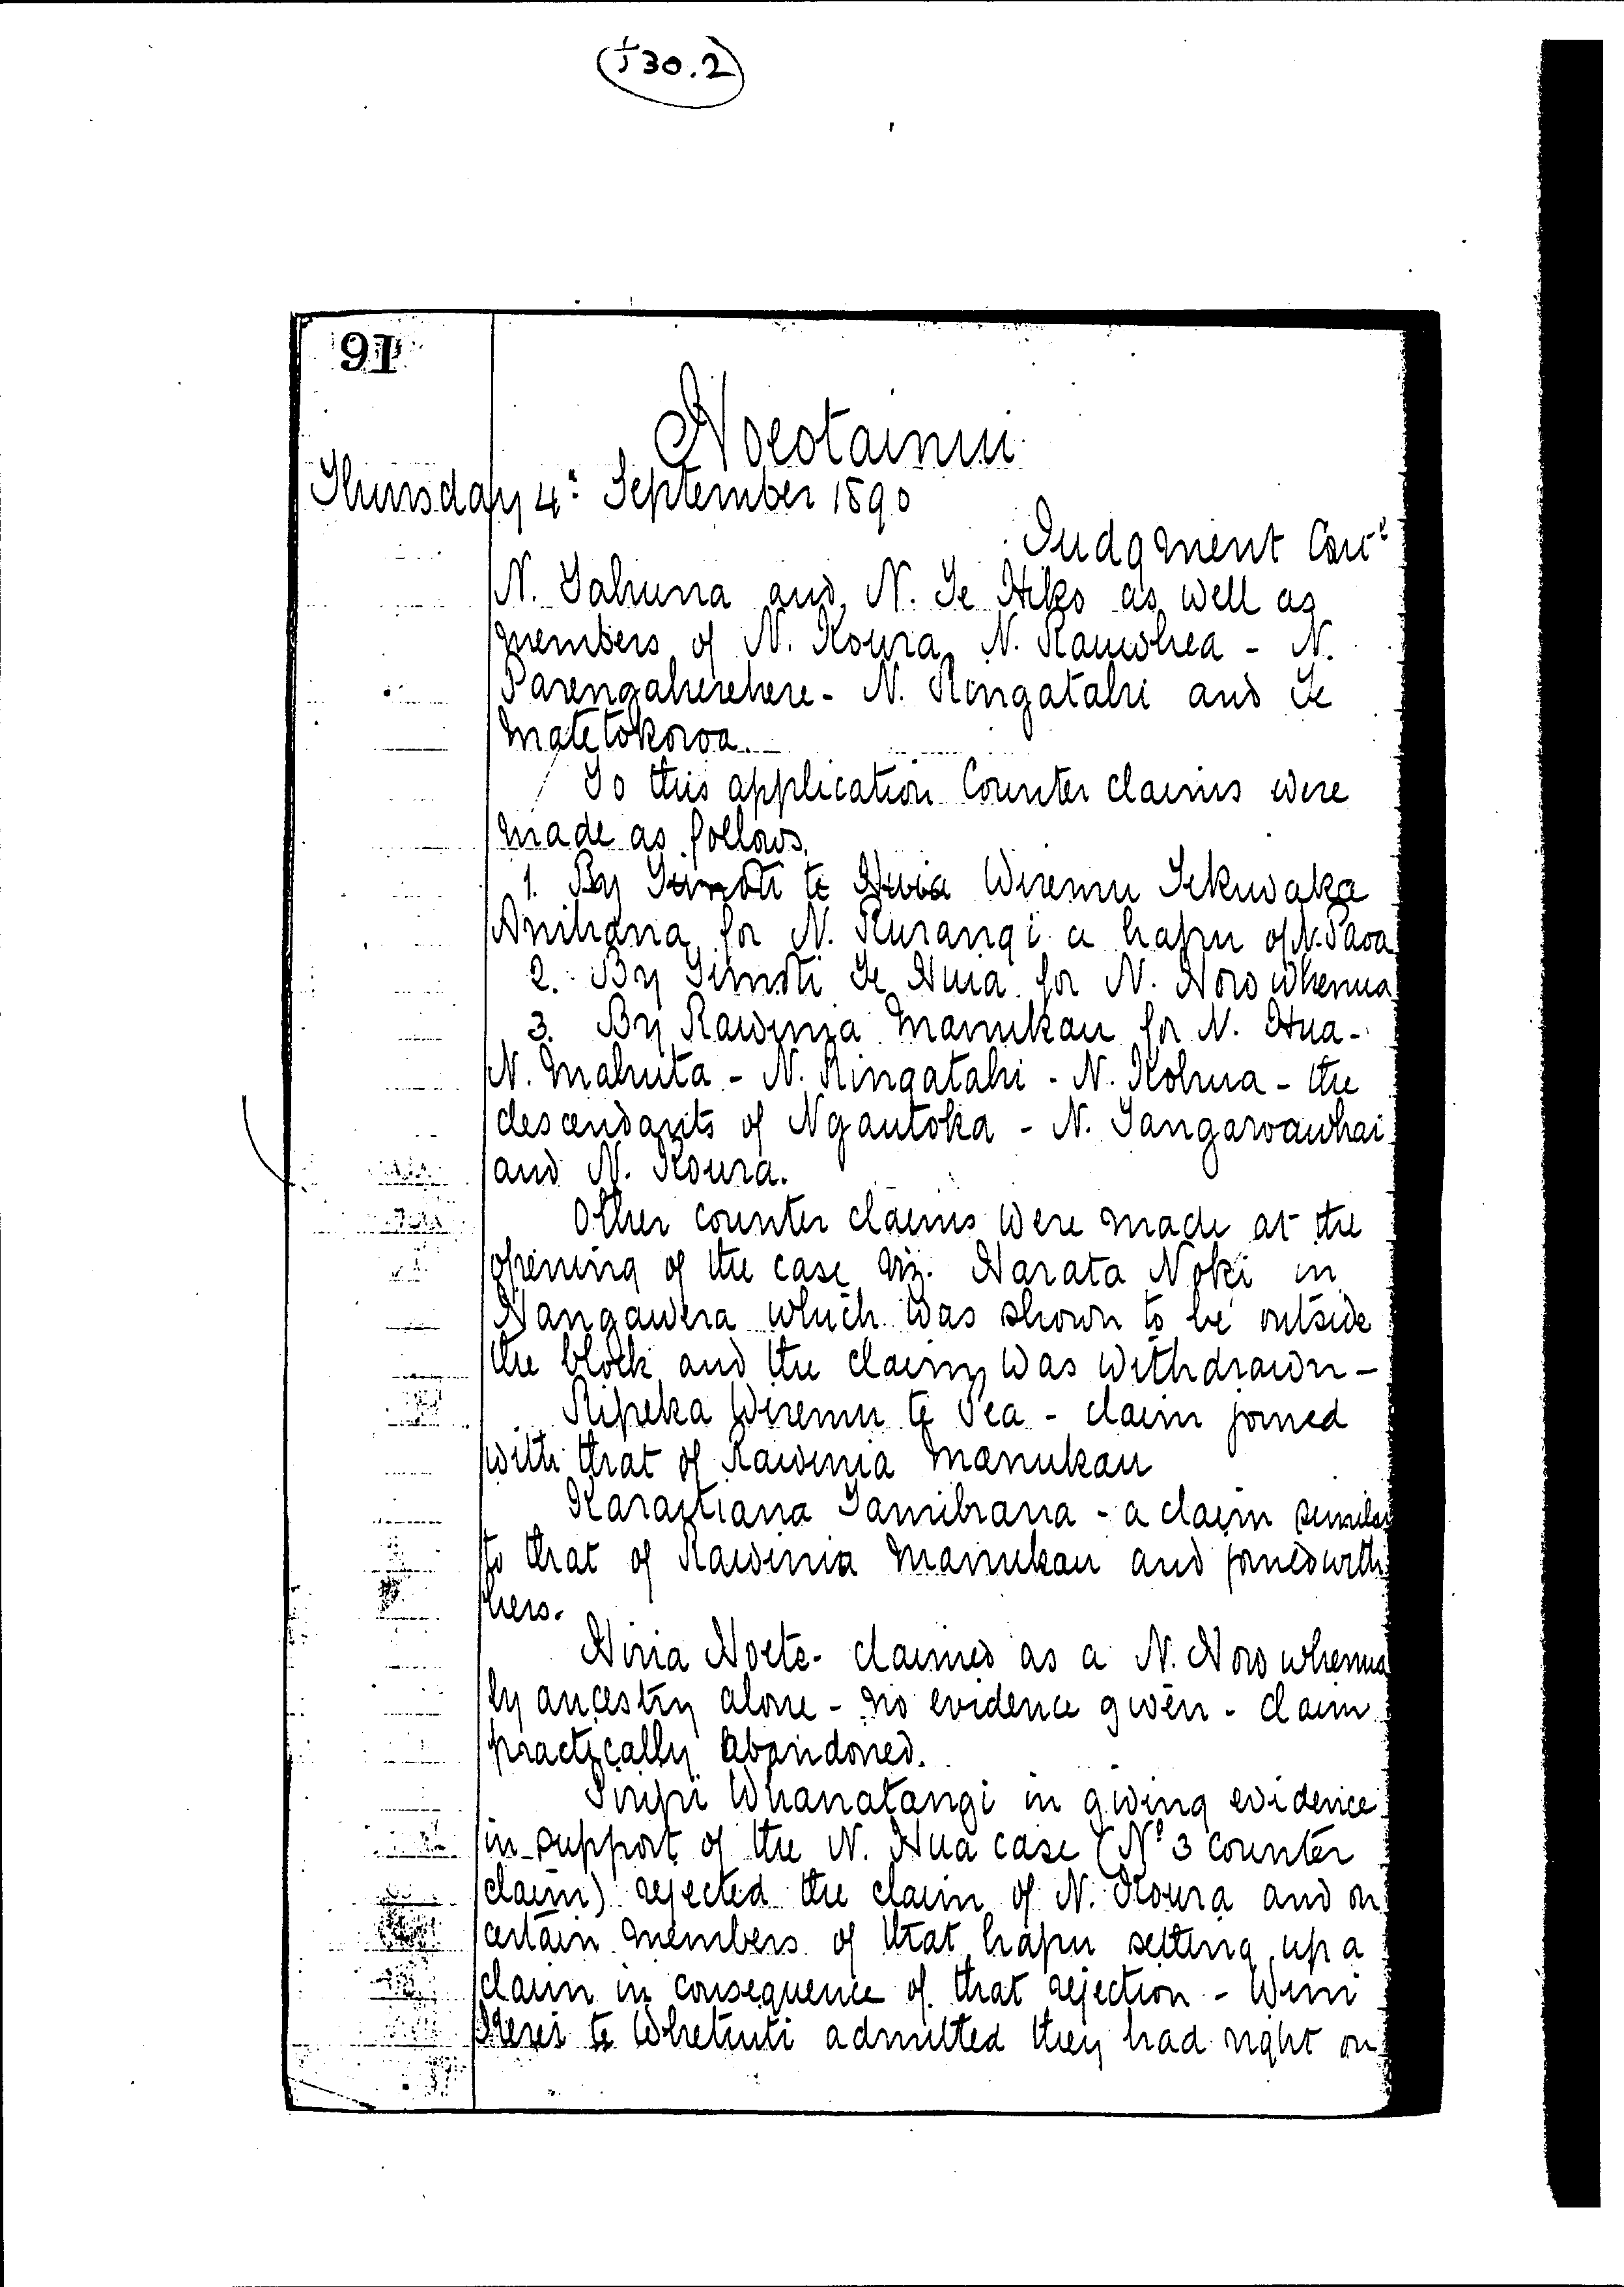 (J30.2)
91
Hoeotainui
Thursday 4th September 1890
Judgment Cont'd
N. Tahuna and N. Te Hiko as well as
members of N. Koura N. Rauwhea - N.
Parengaherehere - N. Ringatahi and Te
Matetokoroa.
To this application Counter claims were
made as follows.
1. By Timoti te Huia Wiremu Tekuwaka
Anihana for N. Rurangi a hapu of N. Paoa
2. By Timoti Te Huia for N. Horowhenua
3. By Rawinia Manukau for N. Hua -
N. Mahuta - N. Ringatahi - N. Kohua - the
descendants of Ngautoka - N. Tangaroawhai
and N. Koura.
Other counter claims were made at the
opening of the case viz. Harata Noki in
Hangawera which was shown to be outside
the block and the claim was withdrawn -
Ripeka Wiremu te Pea - claim joined
with that of Rawinia Manukau
Karaitiana Tamihana - a claim similar
to that of Rawinia Manukau and joined with
hers.
Hiria Hoete - claimed as a N. Horowhenua
by ancestry alone - no evidence given - claim
practically abandoned.
Piripi Whanatangi in giving evidence
in support of the N. Hua case (No 3 counter
claim) rejected the claim of N. Koura and on
certain members of that hapu setting up a
claim in consequence of that rejection - Wini
Kerei te Whetuiti admitted they had right on